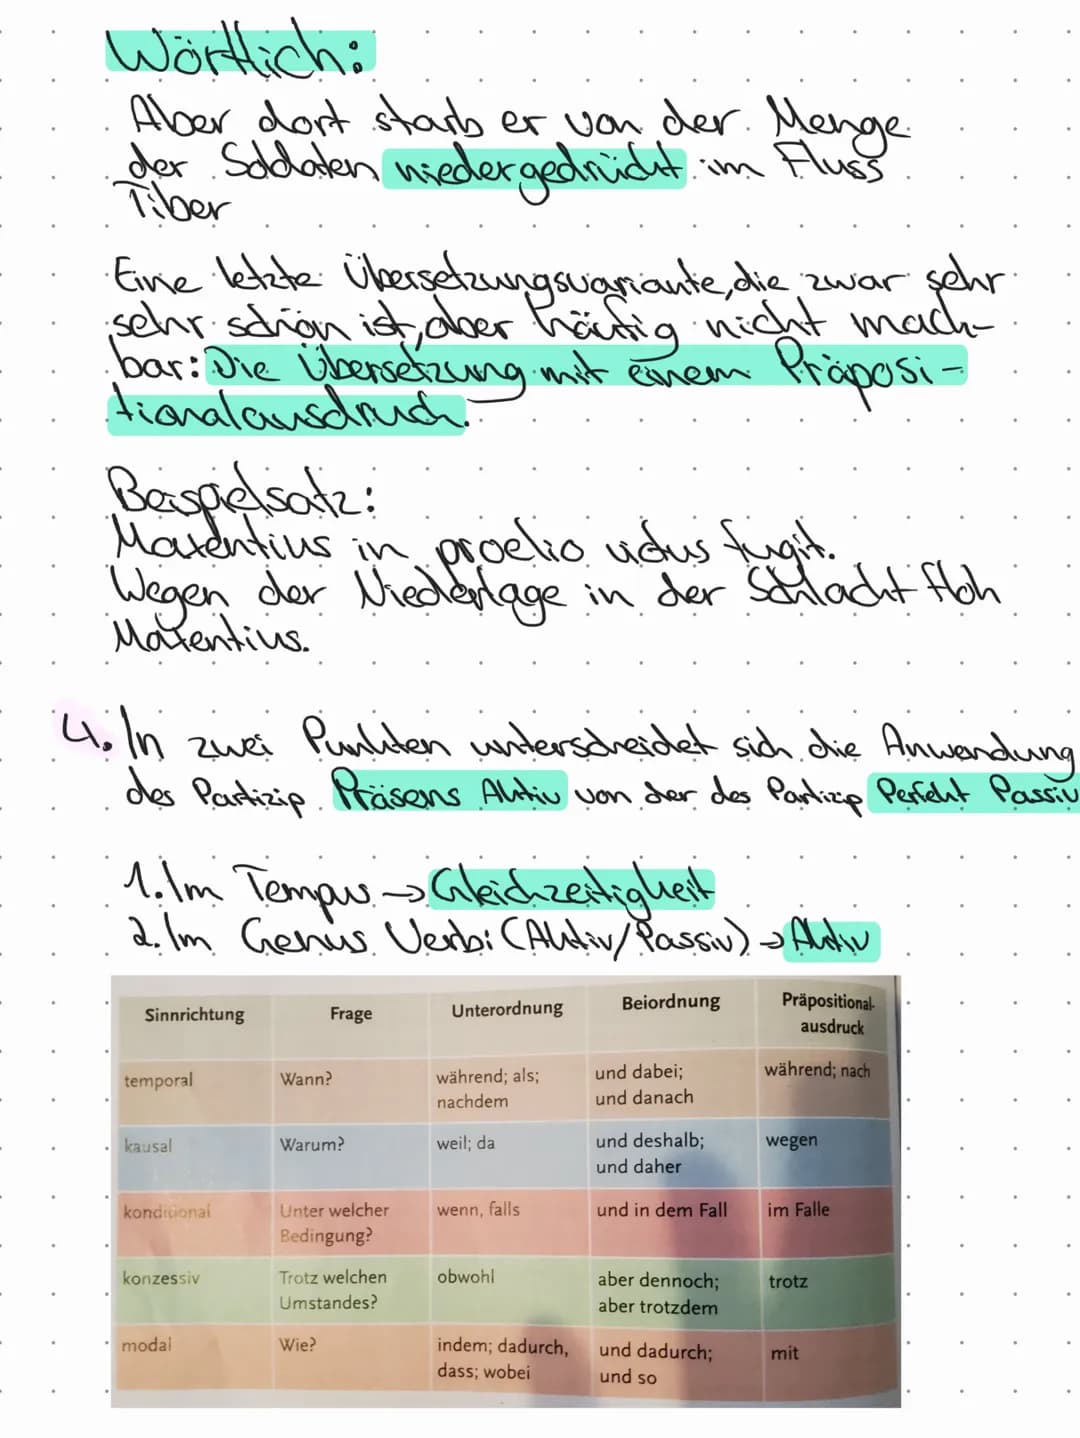 Wörtlich:
Aber dort starb er von der Menge
der Soldaten niedergedrückt im Fluss
Tiber
Eine letzte Übersetzungsvariante, die zwar sehr
sehr schön ist, aber häufig nicht mach-
bar: Die Übersetzung mit einem Präposi-
tionalausdruck.
Beispielsatz:
Maxentius in proelio victus fugit.
Wegen der Niederlage in der Schlacht floh
Maxentius.
4. In zwei Punkten unterscheidet sich die Anwendung
des Partizip Präsens Aktiv von der des Partizip Perfekt Passiv
1. Im Tempus → Gleichzeitigkeit
2. Im Genus Verbi (Aktiv/Passiv) → Aktiv
Sinnrichtung Frage Unterordnung Beiordnung Präpositional-
ausdruck
temporal Wann? während; als; und dabei; während; nach
nachdem und danach
kausal Warum? weil; da und deshalb; wegen
und daher
konditional Unter welcher wenn, falls und in dem Fall im Falle
Bedingung?
konzessiv Trotz welchen obwohl aber dennoch; trotz
Umstandes? aber trotzdem
modal Wie? indem; dadurch, und dadurch; mit
dass; wobei und so